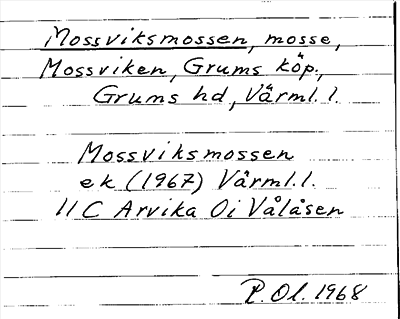 Mossviksmossen, mosse,
Mossviken, Grums köp.,
Grums hd, Värml. l.
Mossviksmossen
ek (1967) Värml. l.
11 C Arvika 0i Vålåsen
P. Ol. 1968